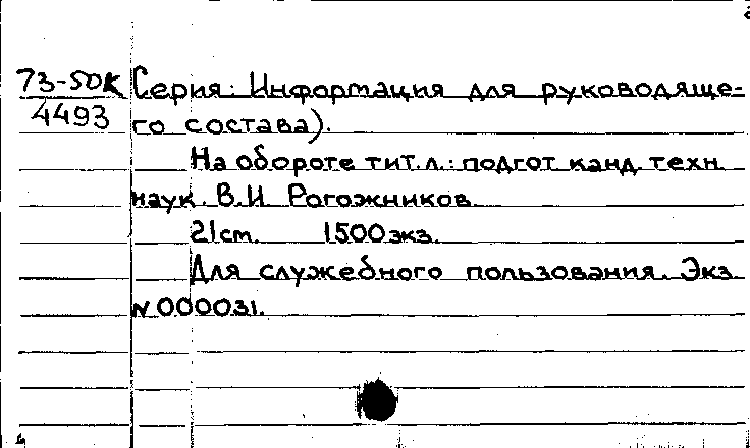 73-50К Серия: Информация для руководяще-
4493 го состава).
На обороте тит.л.: подгот. канд. техн.
наук В.И. Рогожников.
21cm. 1500экз.
Для служебного пользования. Экз.
N000031.